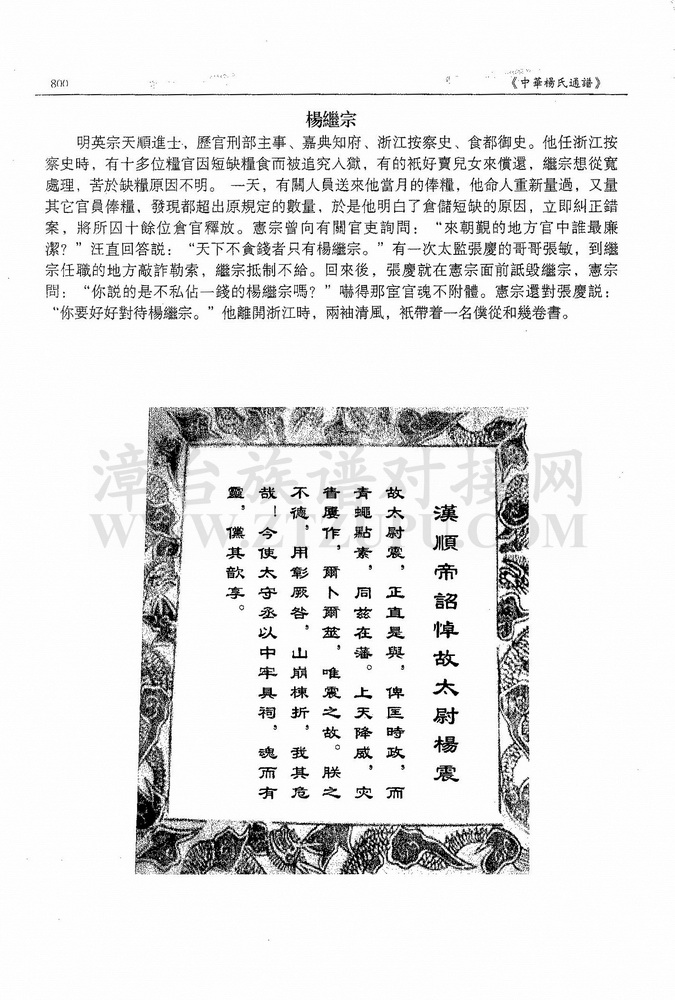 800
《中華楊氏通譜》
楊繼宗
明英宗天順進士，歷官刑部主事、嘉典知府、浙江按察史、食都御史。他任浙江按
察史時，有十多位糧官因短缺糧食而被追究入獄，有的衹好賣兒女來償還，繼宗想從寬
處理，苦於缺糧原因不明。 一天，有關人員送來他當月的俸糧，他命人重新量過，又量
其它官員俸糧，發現都超出原規定的數量，於是他明白了倉儲短缺的原因，立即糾正錯
案，將所囚十餘位倉官釋放。憲宗曾向有關官吏詢問：“來朝觀的地方官中誰最廉
潔？”汪直回答説：“天下不貪錢者只有楊繼宗。”有一次太監張慶的哥哥張敏，到繼
宗任職的地方敲詐勒索，繼宗抵制不給。回來後，張慶就在憲宗面前詆毀繼宗，憲宗
問：“你説的是不私佔一錢的楊繼宗嗎？”嚇得那宦官魂不附體。憲宗還對張慶説：
“你要好好對待楊繼宗。”他離開浙江時，兩袖清風，衹帶着一名僕從和幾卷書。
漢順帝詔悼故太尉楊震
故太尉震，正直是與，俾匡時政，而
青蠅點素，同兹在藩。上天降威，灾
眚屢作，爾卜爾莁，唯震之故。朕之
不德，用彰厥咎，山崩棟折，我其危
哉！今使太守丞以中牢具祠，魂而有
靈，儻其歆享。
漳台族谱对接网
WWW.ZTZUPU.COM